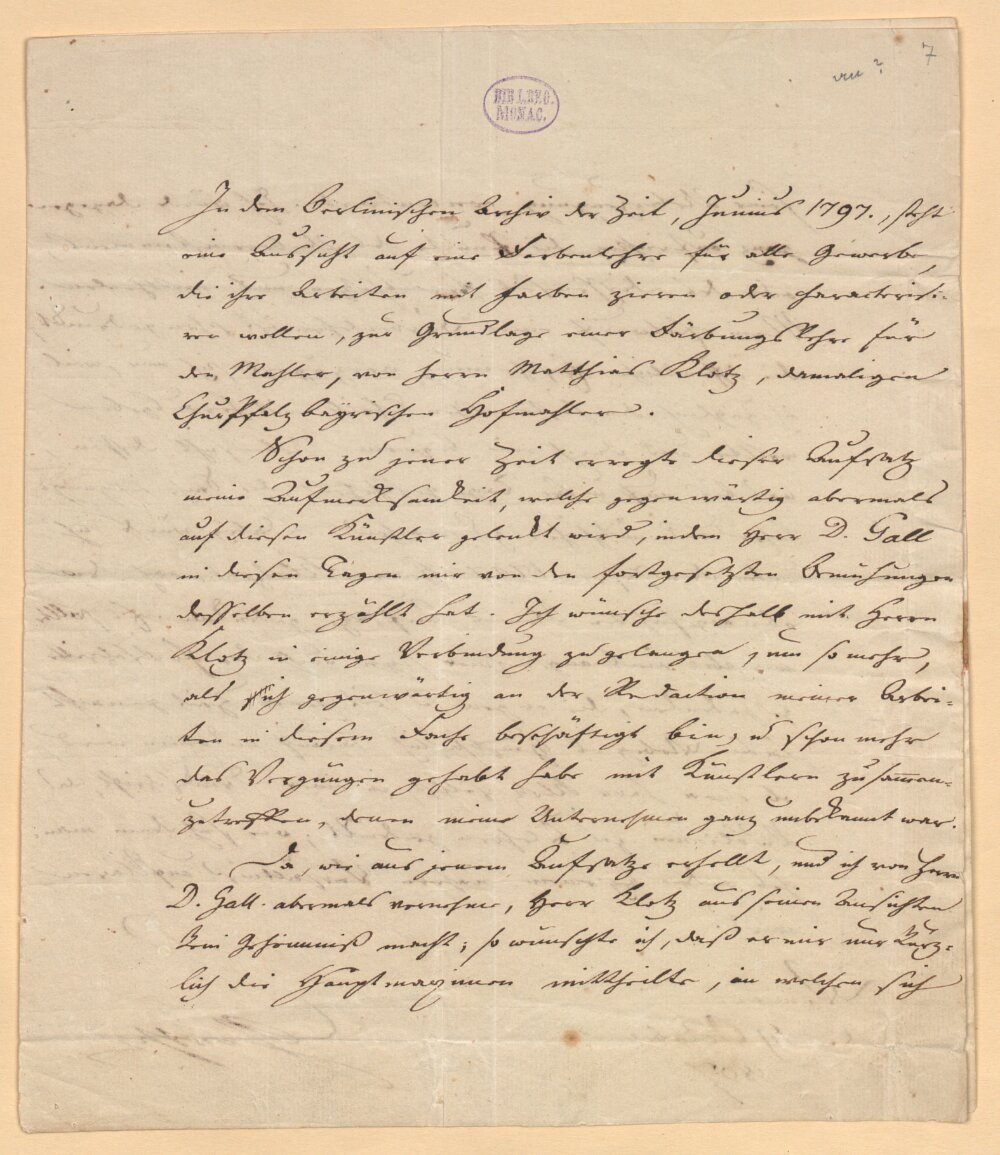 7
BIBL.REG.
MONAC.
In dem Berlinischen Archiv der Zeit, Junius 1797., steht
eine Aussicht auf eine Farbenlehre für alle Gewerbe,
die ihre Arbeiten mit Farben zieren oder characterisi-
ren wollen, zur Grundlage einer Färbungslehre für
den Mahler, von Herrn Matthias Klotz, damaligen
Churpfalzbayrischen Hofmahler.
Schon zu jener Zeit erregte dieser Aufsatz
meine Aufmerksamkeit, welche gegenwärtig abermals
auf diesen Künstler gelenkt wird, indem Herr D. Gall
in diesen Tagen mir von den fortgesetzten Bemühungen
desselben erzählt hat. Ich wünsche deshalb mit Herrn
Klotz in einige Verbindung zu gelangen, um so mehr,
als ich gegenwärtig an der Redaction meiner Arbei-
ten in diesem Fache beschäftigt bin, u schon mehr
das Vergnügen gehabt habe mit Künstlern zusammen-
zutreffen, denen meine Unternehmen ganz unbekannt war.
Da, wie aus jenem Aufsatze erhellt, und ich von Herrn
D. Gall. abermals vernehme, Herr Klotz aus seinen Ansichten
kein Geheimniß macht; so wünschte ich, daß er mir nur kürz-
lich die Hauptmaximen mittheilte, in welchen sich